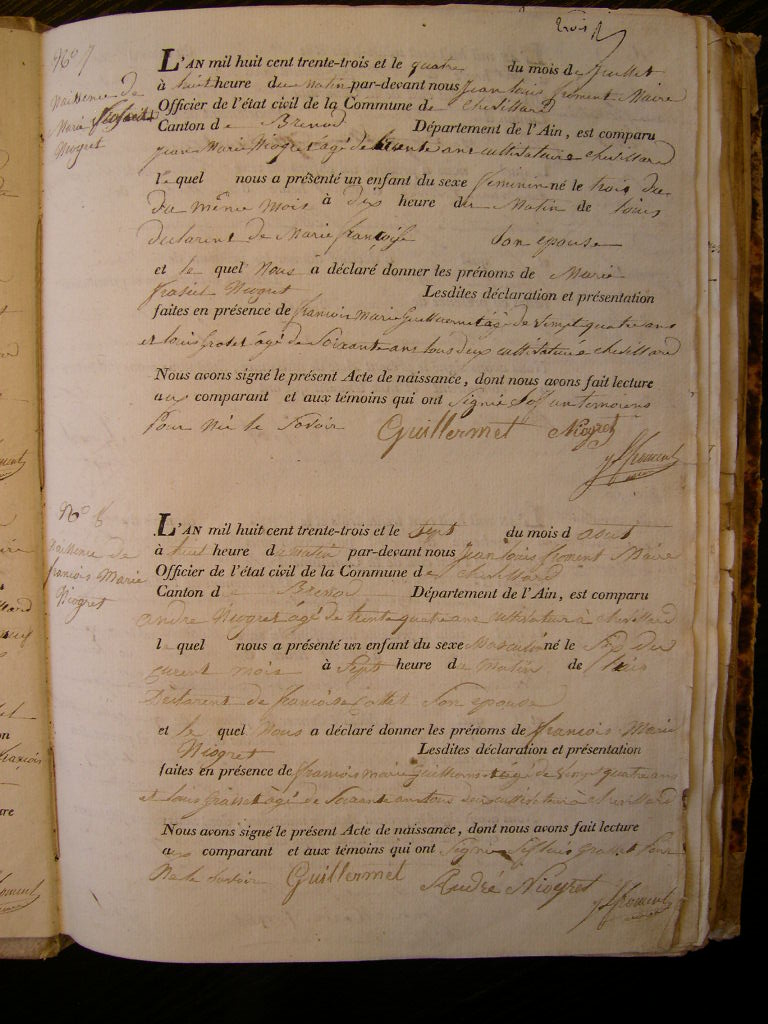 trois
No 7
Naissance de
Marie
Niogret
L'AN mil huit cent trente-trois et le quatre du mois de Juillet
à huit heure du Matin par-devant nous Jean louis froment Maire
Officier de l'état civil de la Commune de chevillard
Canton de Brenod Département de l'Ain, est comparu
Jean Marie Niogret agé de trente ans cultivateur a chevillard
le quel nous a présenté un enfant du sexe feminin né le trois du
du même mois à dix heure du Matin de louis
declarent de Marie françoise son epouse
et le quel Nous a déclaré donner les prénoms de Marie
Niogret Lesdites déclaration et présentation
faites en présence de francois Marie Guillermet agé de vingt quatre ans
et louis agé de Soixante ans tous deux cultivateur a chevillard
Nous avons signé le présent Acte de naissance, dont nous avons fait lecture
aux comparant et aux témoins qui ont Signé un temoiens
pour Ne le Savoir Guillermet Niogret
froment
No 8
Naissence de
francois Marie
Niogret
L'AN mil huit cent trente-trois et le Sept du mois d aout
à huit heure du matin par-devant nous Jean louis froment Maire
Officier de l'état civil de la Commune de chevillard
Canton de Brenod Département de l'Ain, est comparu
andre Niogret agé de trente quatre ans cultivateur à chevillard
le quel nous a présenté un enfant du sexe Masculin né le Six du
curent mois à Sept heure du Matin de
Declarent de francoise Collet Son epouse
et le quel Nous a déclaré donner les prénoms de francois Marie
Niogret Lesdites déclaration et présentation
faites en présence de francois marie guillermet agé de vingt quatre ans
et louis grasset agé de Soixante ans tous deux cultivateur à chevillard
Nous avons signé le présent Acte de naissance, dont nous avons fait lecture
aux comparant et aux témoins qui ont Signé louis grasset pour
Ne le Savoir Guillermet André Niogret froment